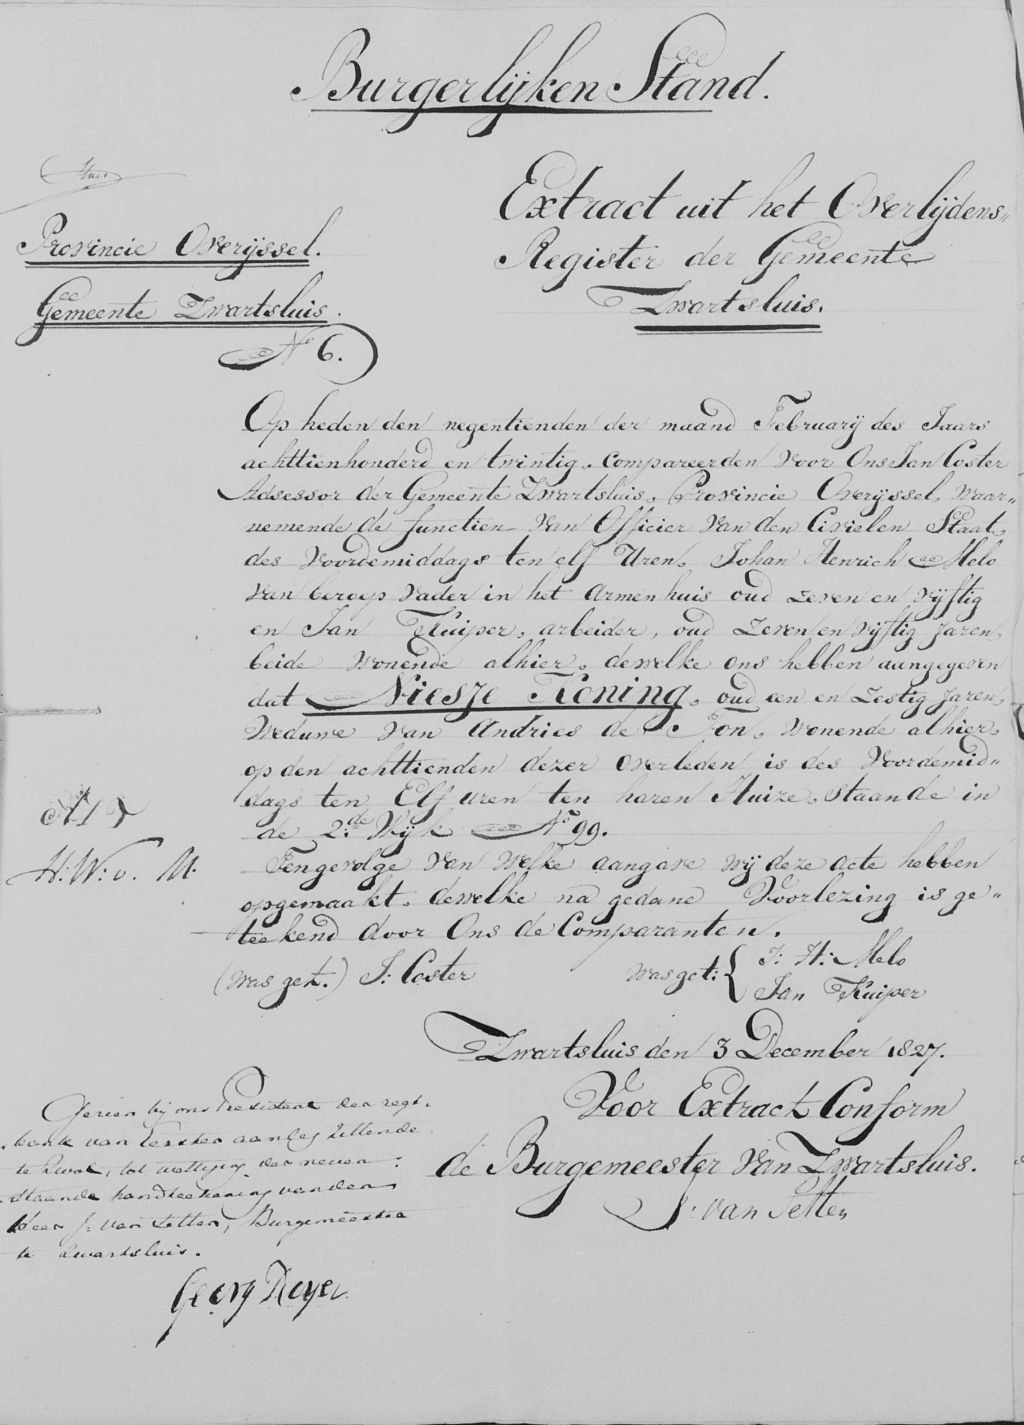 Burgerlijken Stand.
Provincie Overijssel.
Gemeente Zwartsluis.
No 6.
Extract uit het Overlijdens-
Register der Gemeente
Zwartsluis.
Op heden den negentienden der maand February des Jaars
achttienhonderd en twintig, compareerden voor Ons Jan Coster
Adsessor der Gemeente Zwartsluis, Provincie Overijssel, waar-
nemende de functien van Officier van den Civielen Staat,
des voordemiddags ten elf Uren, Johan Henrich Melo
van beroep vader in het armenhuis oud zeven en vijftig
en Jan Kuiper, arbeider, oud zeven en vijftig jaren,
beide wonende alhier, dewelke ons hebben aangegeven
dat Niesje Koning, oud een en zestig jaren,
Weduwe van Andries de Jon, wonende alhier,
op den achttienden dezer overleden is des Voordemid-
dags ten Elf uren ten haren Huize, staande in
de 2de Wijk No 99.
Tengevolge van welke aangave wij deze acte hebben
opgemaakt, dewelke na gedane Voorlezing is ge-
teekend door Ons de Comparanten.
(was get.) J: Coster
was get: J: H: Melo
Jan Kuiper
H: W: v. M.
Zwartsluis den 3 December 1827.
Voor Extract Conform
de Burgemeester van Zwartsluis.
J: van Setten
Gezien bij ons President der regt-
bank van Eersten aanleg zittende
te Zwol, tot wettiging der neven-
staande handteekening van den
Heer J: van Setten, Burgemeester
te Zwartsluis.
Georg Dryer